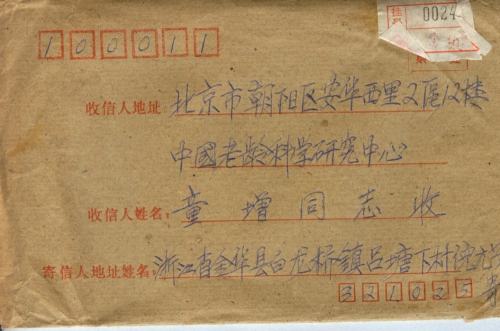 0024
100011
收信人地址:北京市朝阳区安华西里2区12楼
中國老龄科学研究中心
收信人姓名:童增同志收
寄信人地址姓名:浙江省金华县白龙桥镇吕塘下村
321025